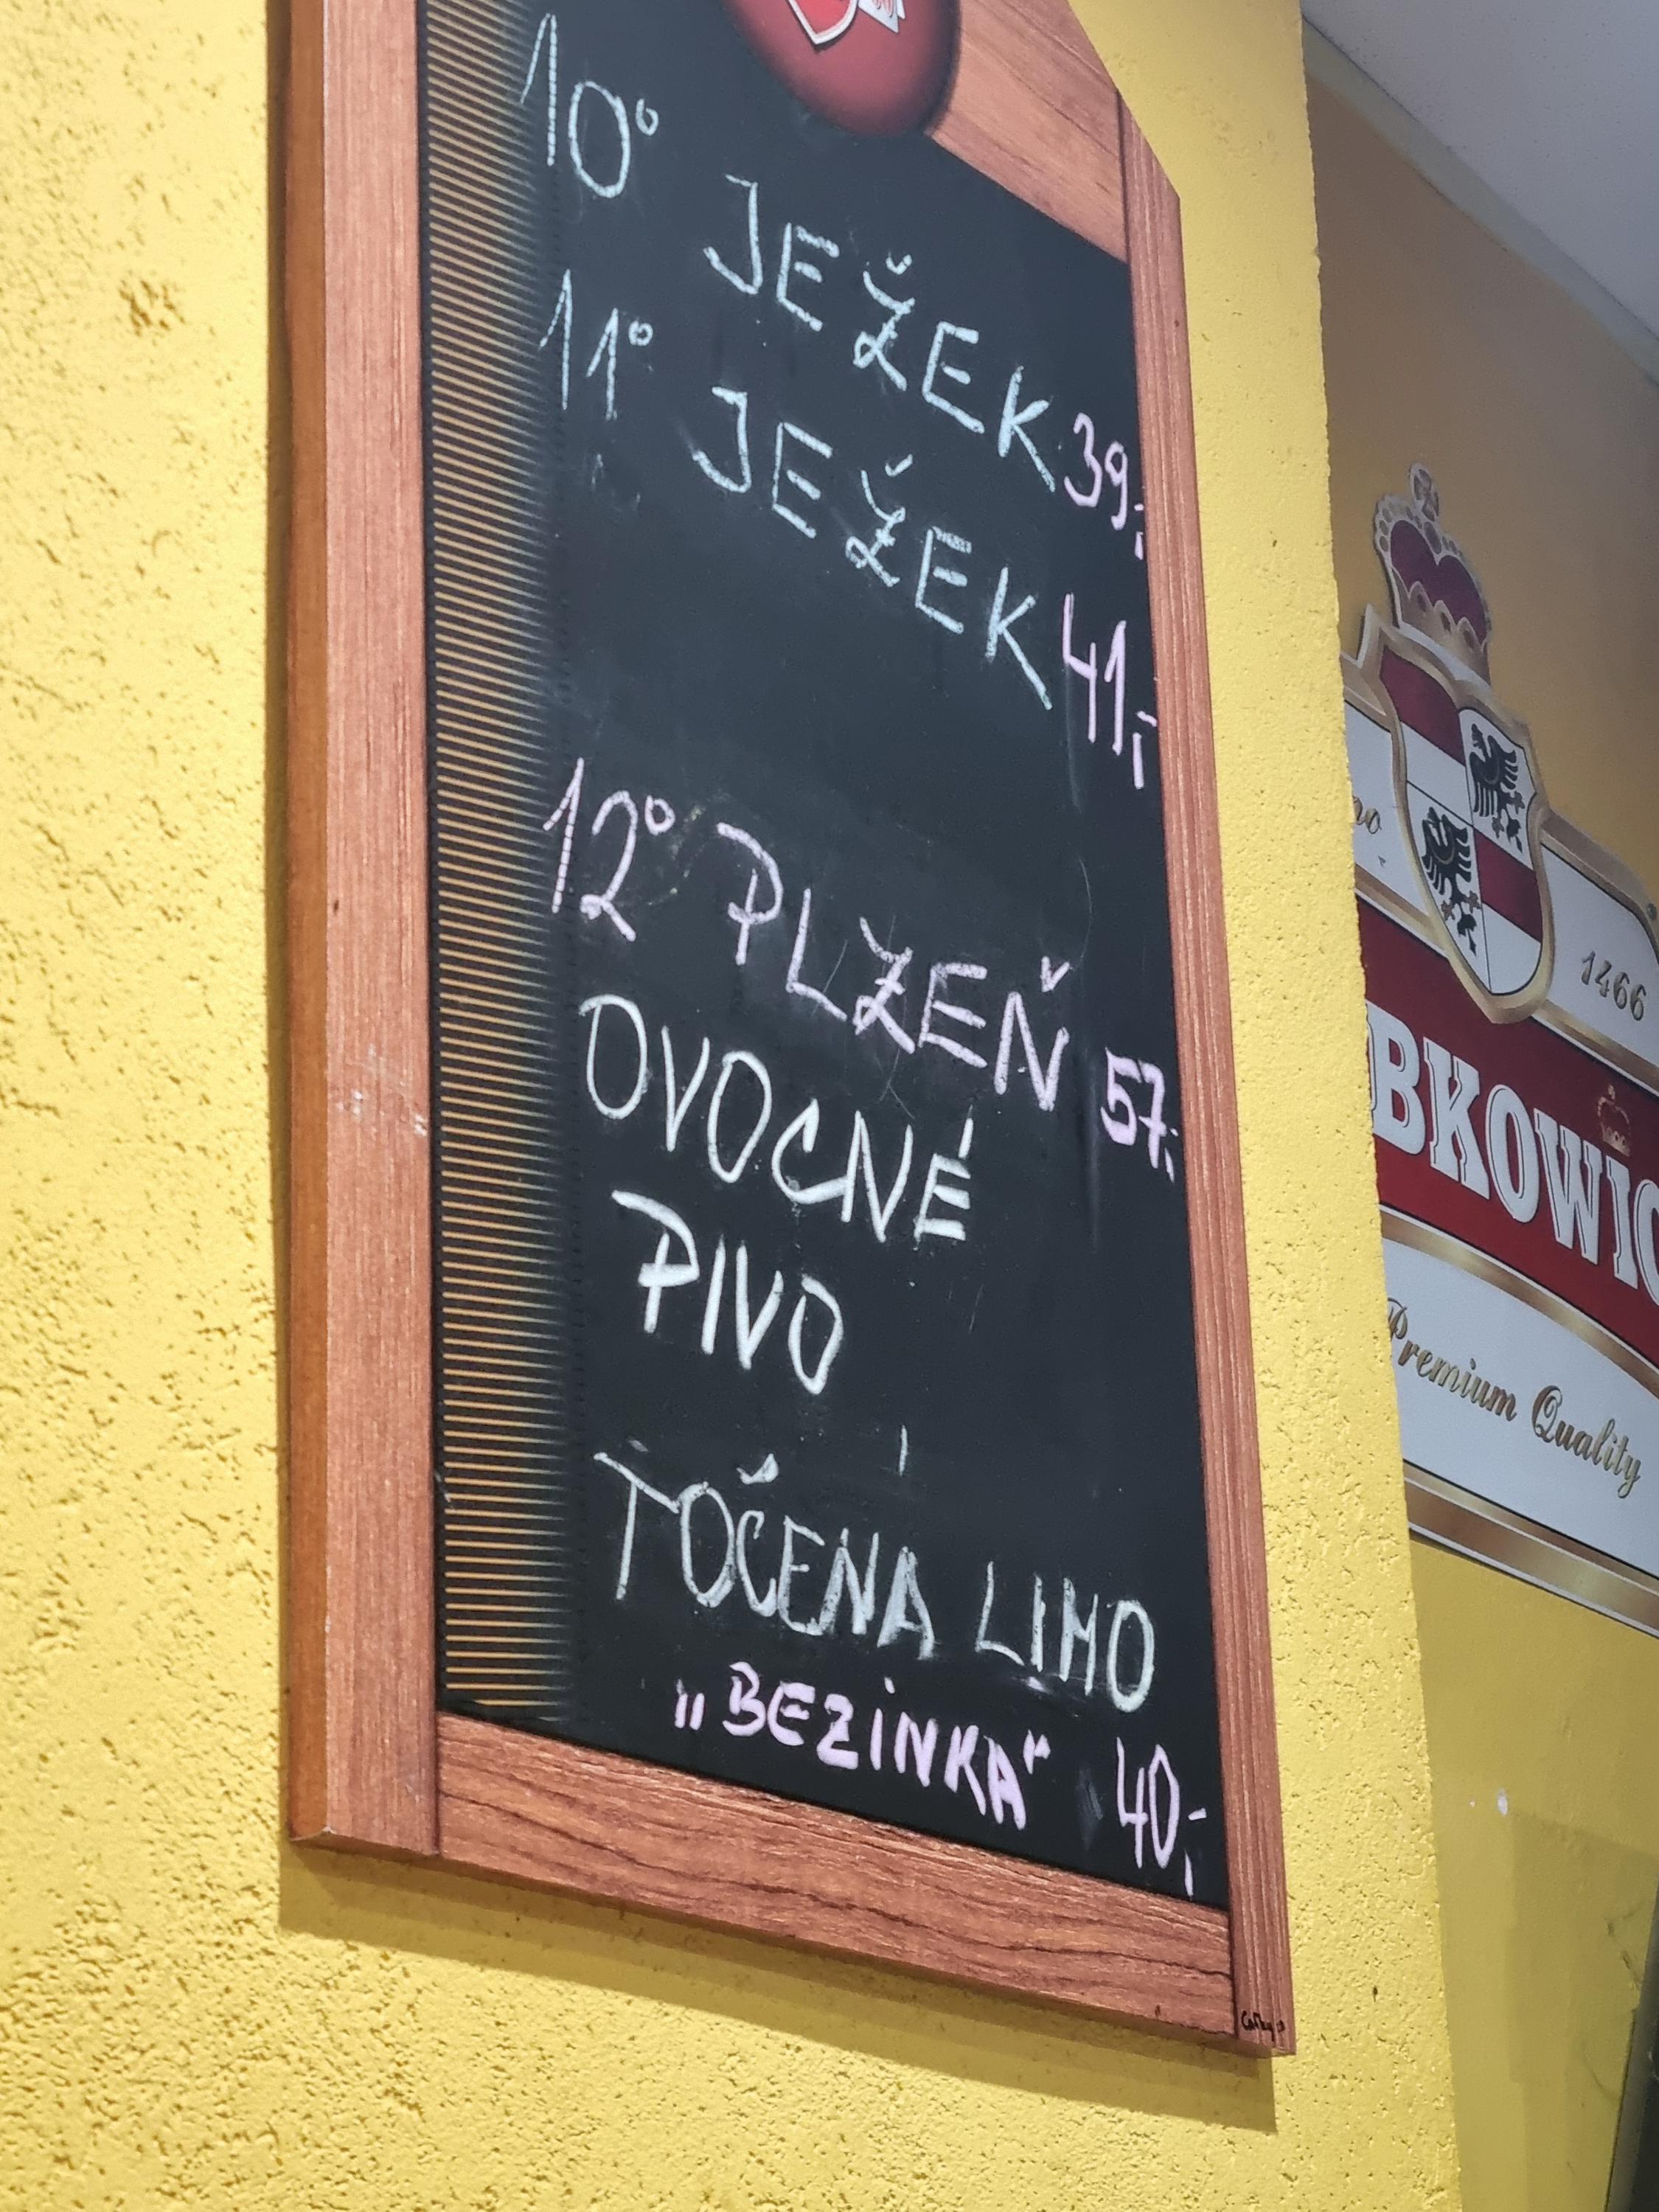 10° JEŽEK 39,-
11° JEŽEK 41,-
12° PLZEŇ 57,-
OVOCNÉ
PIVO
TOČENÁ LIMO
„BEZINKA" 40,-
1466
BKOWIC
Premium Quality